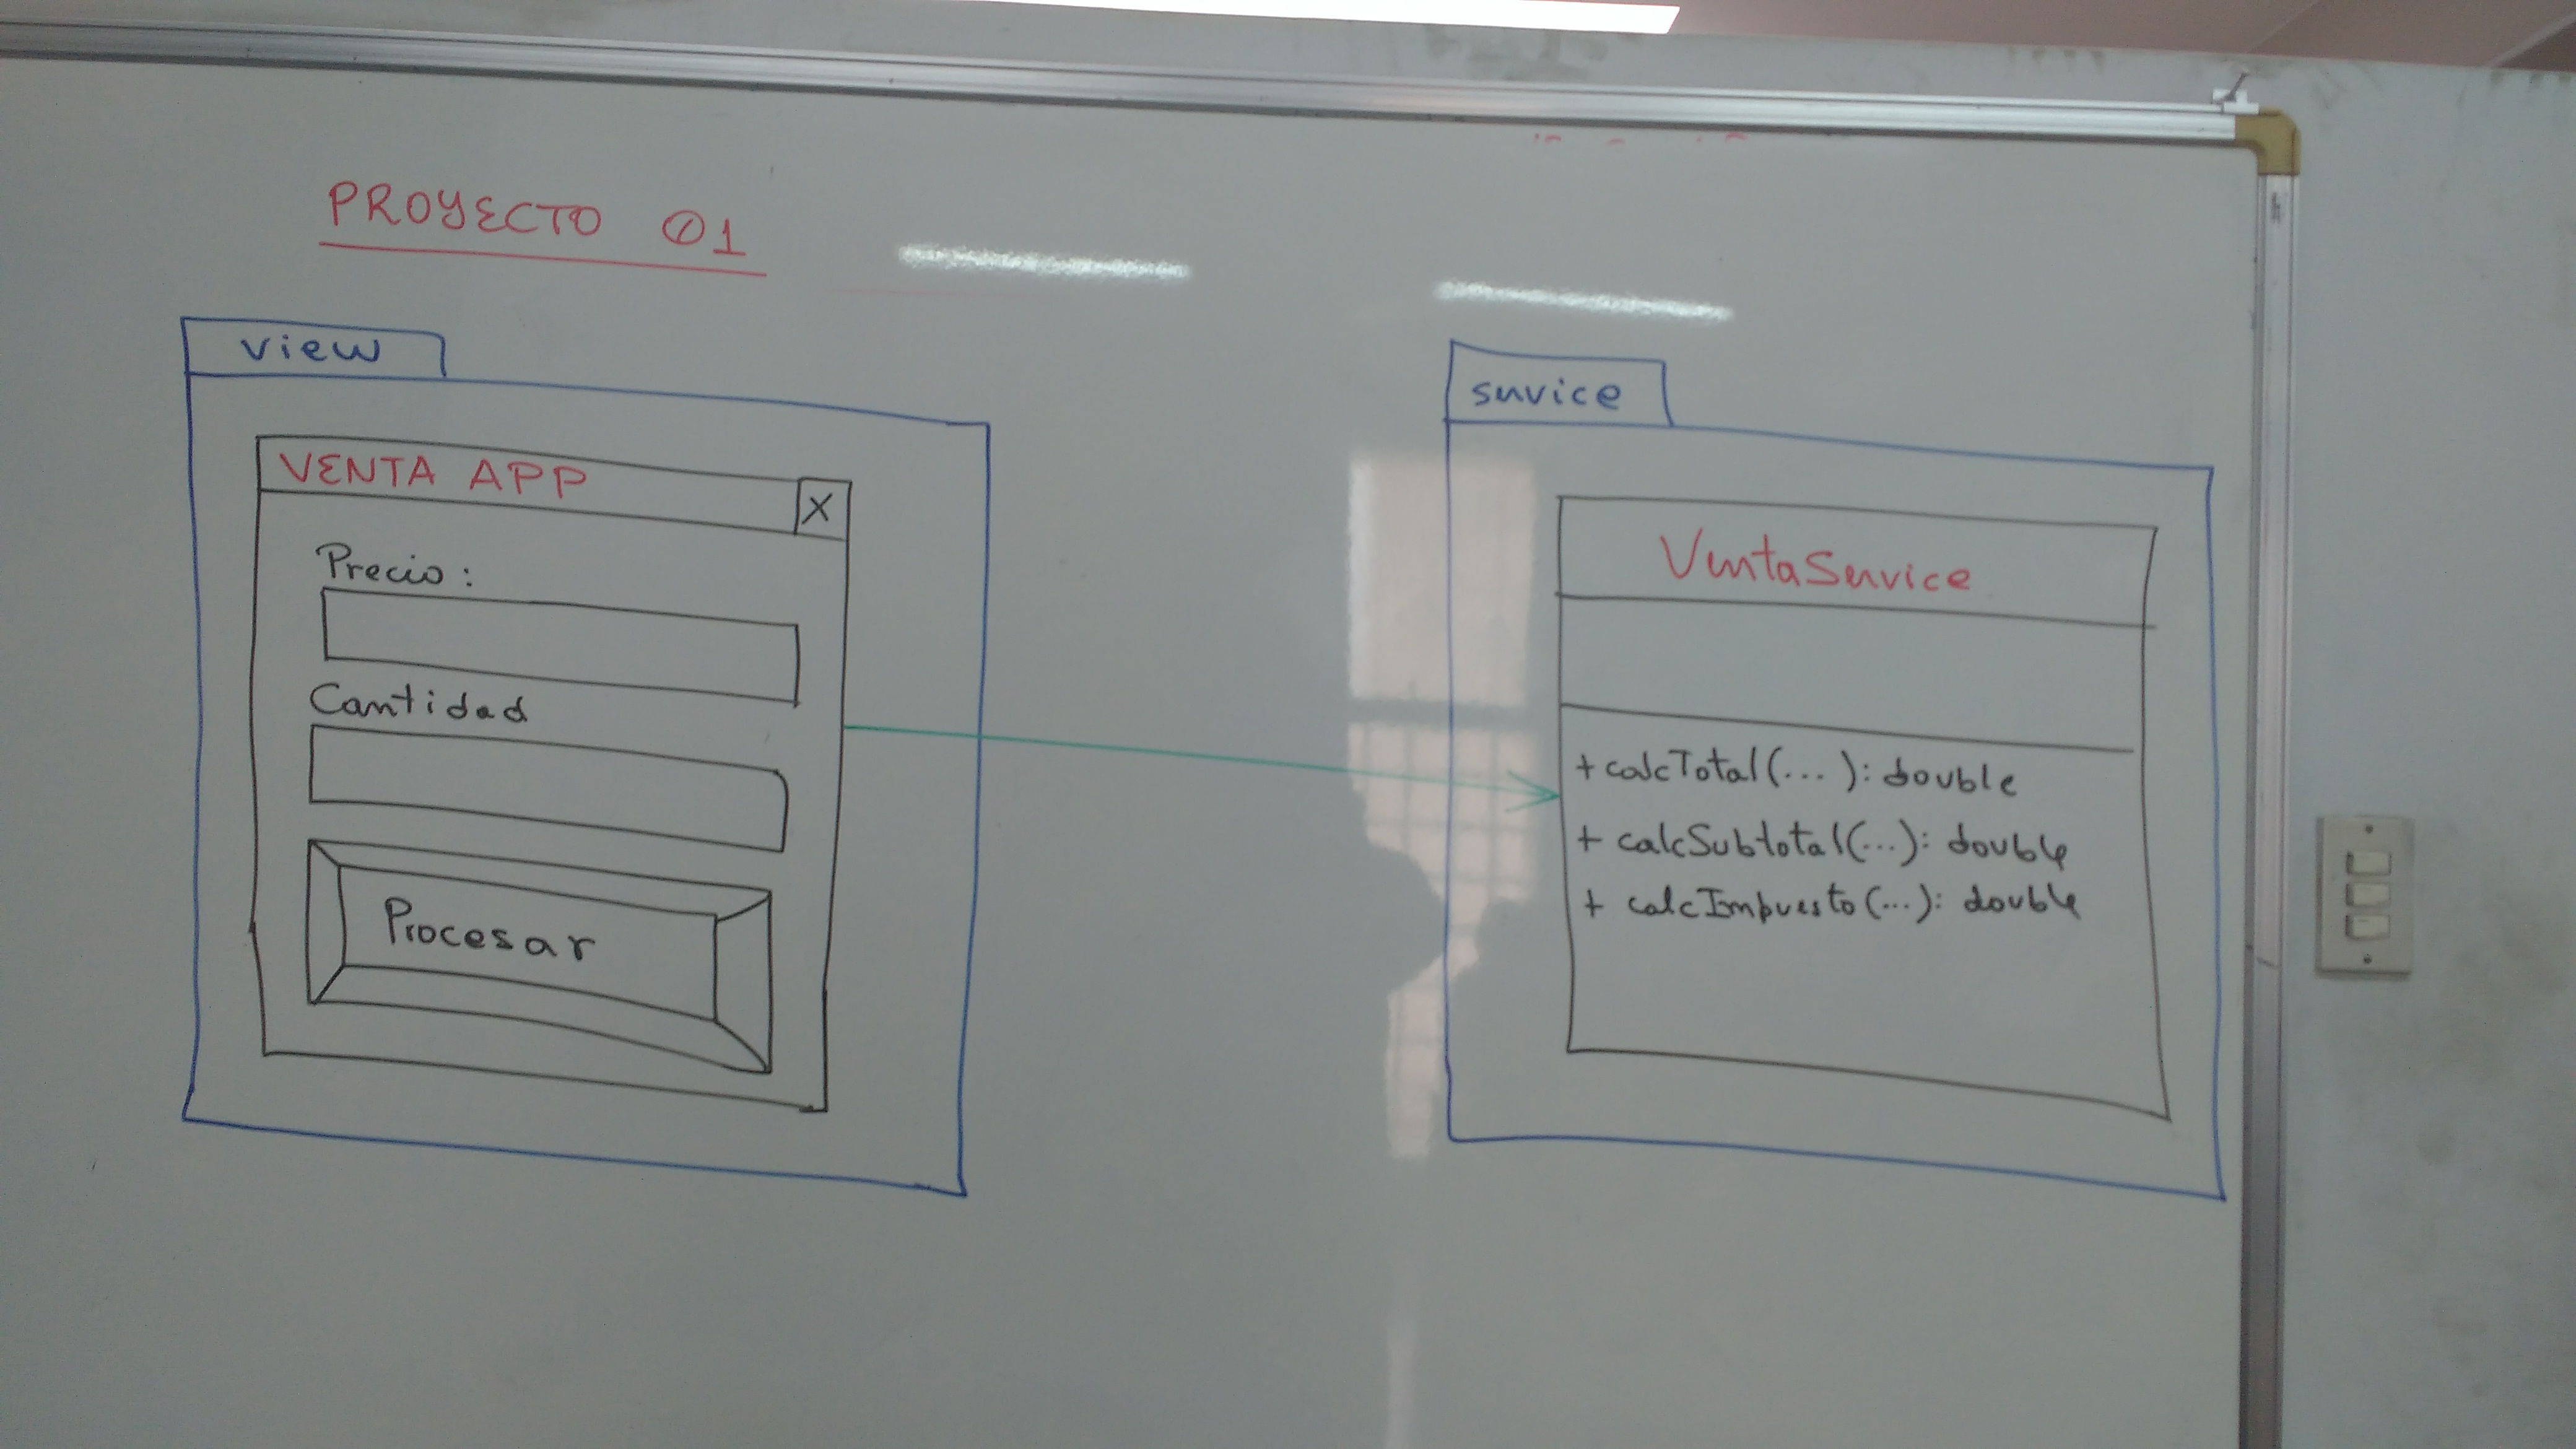 PROYECTO 01
view
VENTA APP
X
Precio:
Cantidad
Procesar
service
VentaService
+ calcTotal(...): double
+ calcSubtotal(...): double
+ calcImpuesto(...): double